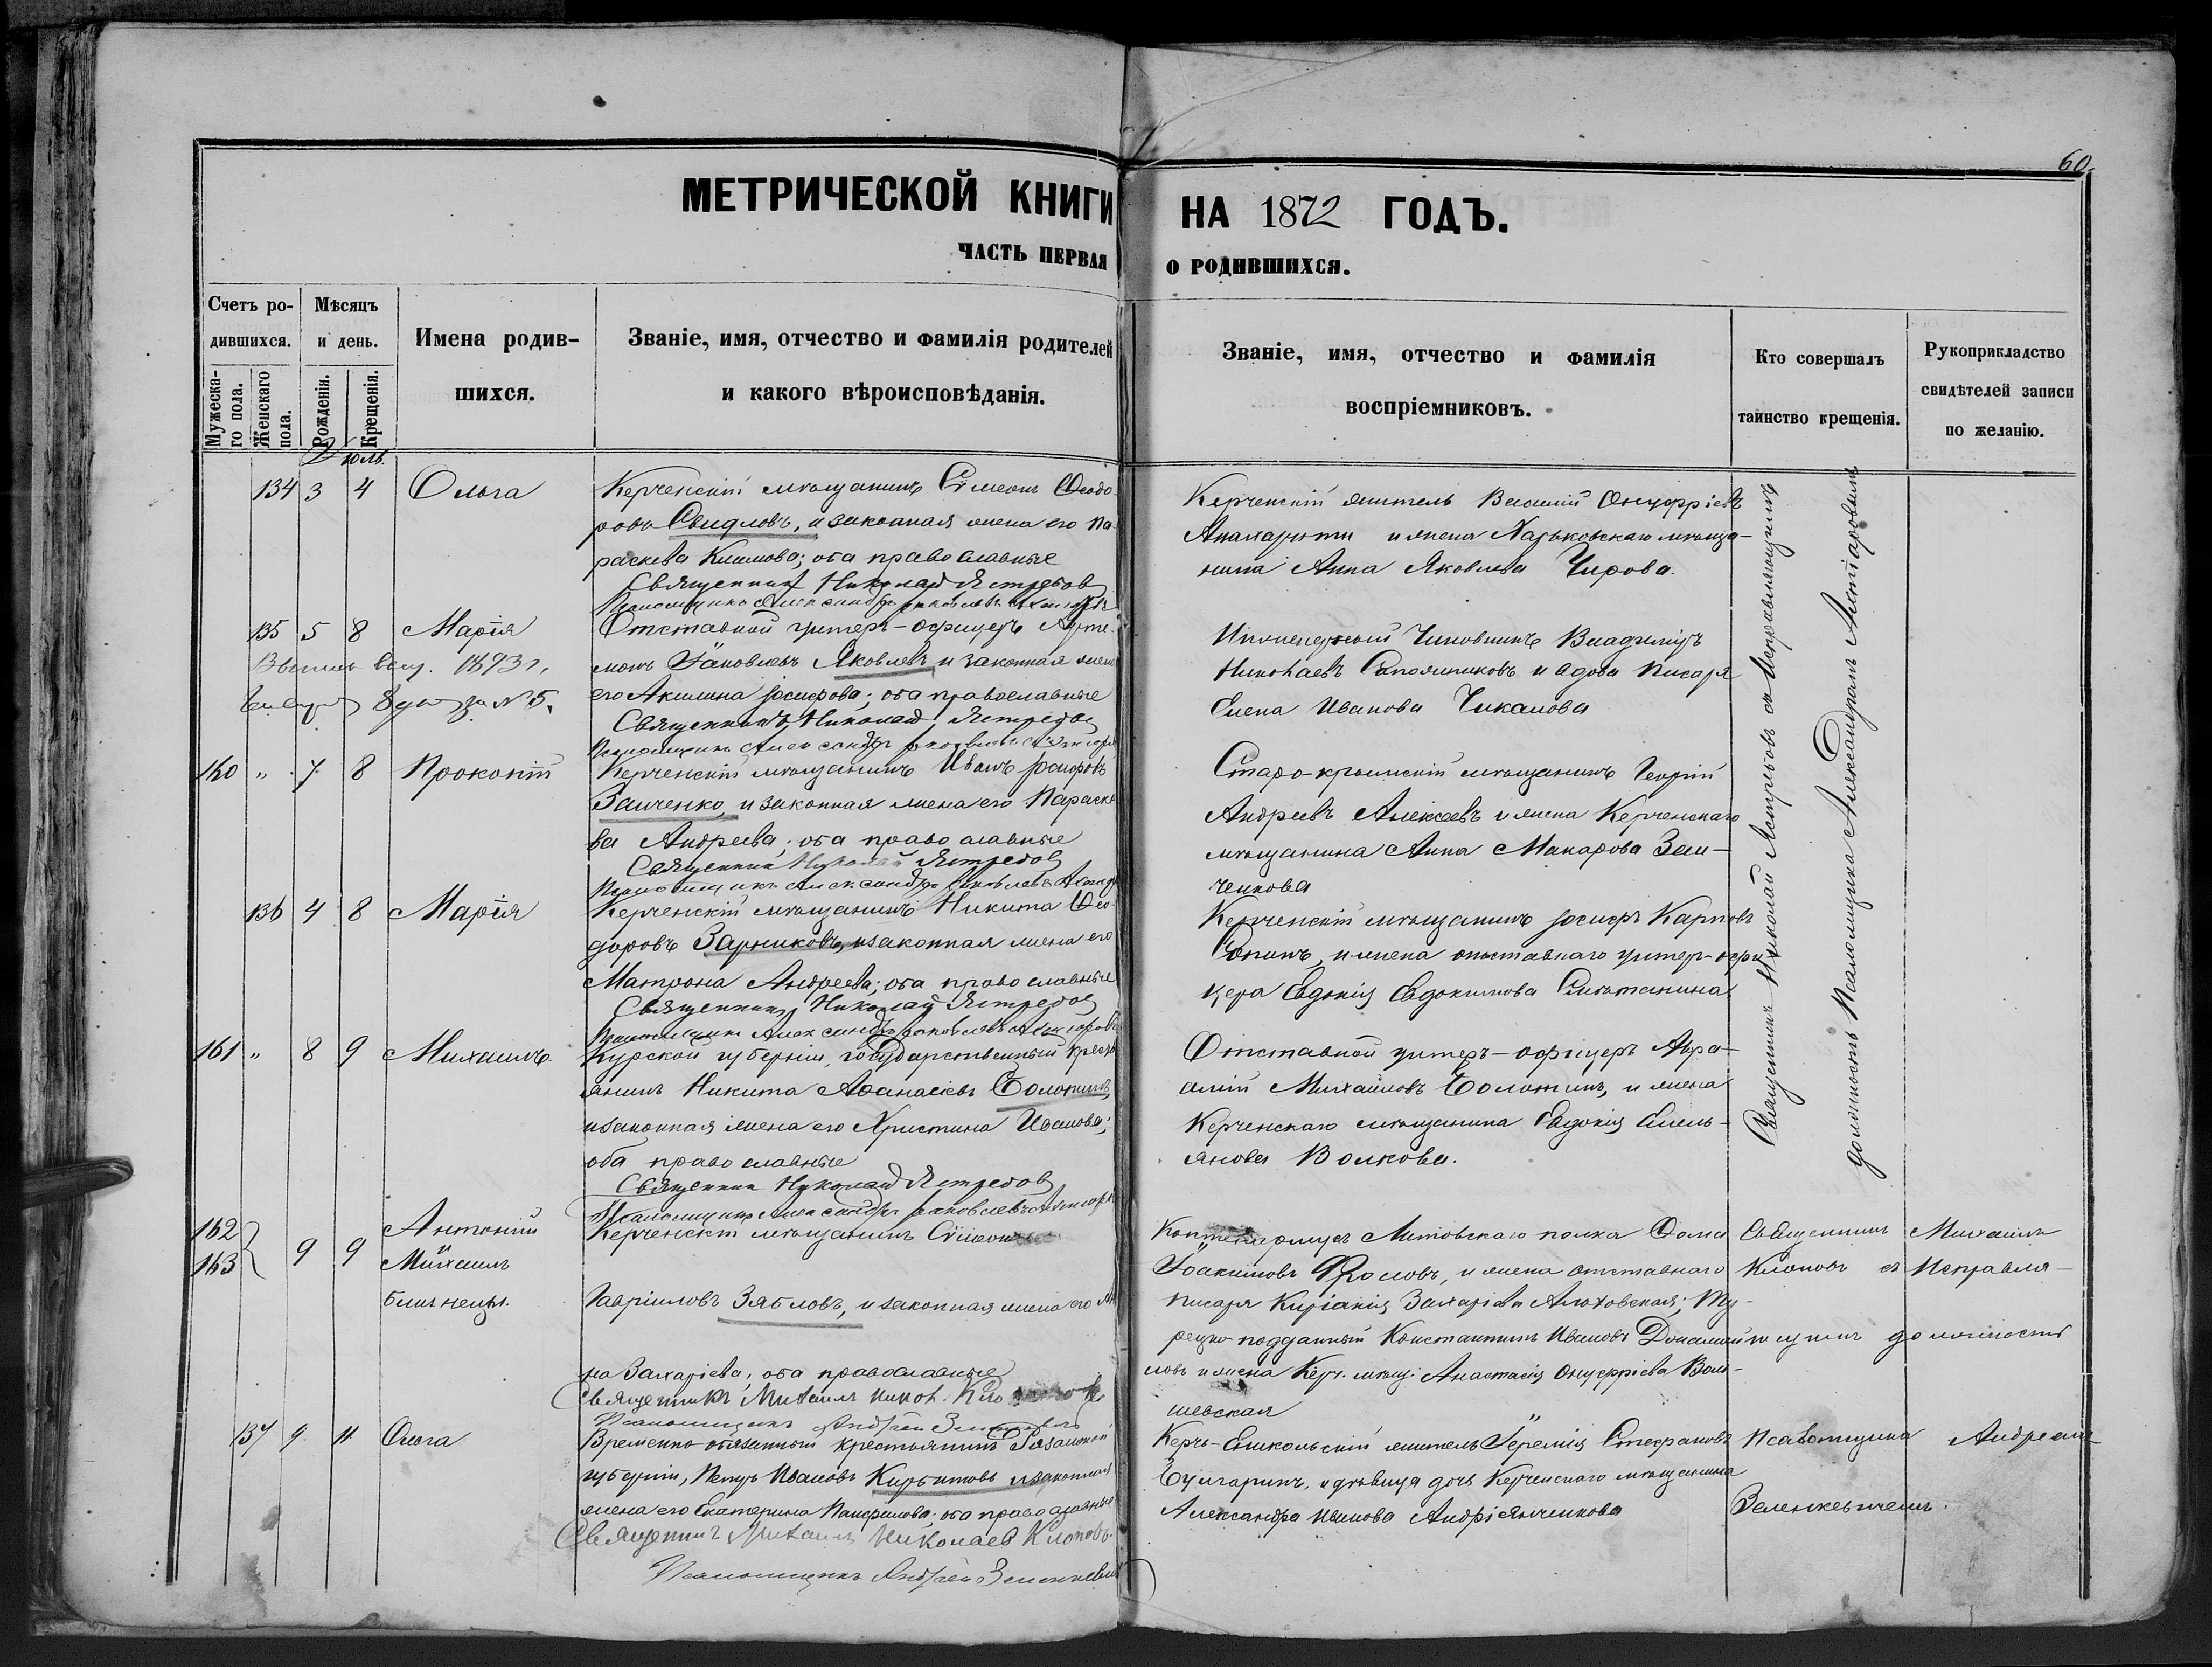 60.
МЕТРИЧЕСКОЙ КНИГИ НА 1872 ГОДЪ.
ЧАСТЬ ПЕРВАЯ О РОДИВШИХСЯ.
Счетъ ро-
дившихся.
Мужеска-
го пола.
Женскаго
пола.
Мѣсяцъ
и день.
Рожденія.
Крещенія.
Имена родив-
шихся.
Званіе, имя, отчество и фамилія родителей
и какого вѣроисповѣданія.
Званіе, имя, отчество и фамилія
воспріемниковъ.
Кто совершалъ
таинство крещенія.
Рукоприкладство
свидѣтелей записи
по желанію.
Іюль.
134 3 4 Ольга
Керченскій мѣщанинъ Сѵмеонъ Ѳеодо-
ровъ Свидловъ, и законная жена его Па-
раскева Климова; оба православные
Священникъ Николай Ястребовъ
Псаломщикъ Александръ Яковлевъ
Керченскій житель Василій Онуфріевъ
и жена Харьковскаго мѣща-
нина Анна Яковлева Чирова.
135 5 8 Марія
1893 г.
8 дня за № 5.
Отставной унтеръ-офицеръ Арте-
монъ Іаковлевъ Яковлевъ и законная жена
его Акилина Іосифова; оба православные
Священникъ Николай Ястребовъ
Псаломщикъ Александръ Яковлевъ
чиновникъ Владиміръ
Николаевъ Сапожниковъ и вдова писаря
Елена Иванова Чикалова
160 " 7 8 Прокопій
Керченскій мѣщанинъ Иванъ Іосифовъ
Заиченко, и законная жена его Параске-
ва Андреева; оба православные
Священникъ Николай Ястребовъ
Псаломщикъ Александръ Яковлевъ
Старо-крымскій мѣщанинъ Георгій
Андреевъ Алексеевъ и жена Керченскаго
мѣщанина Анна Макарова Заи-
ченкова
136 4 8 Марія
Керченскій мѣщанинъ Никита Ѳео-
доровъ Зарниковъ, и законная жена его
Матрона Андреева; оба православные
Священникъ Николай Ястребовъ
Псаломщикъ Александръ Яковлевъ
Керченскій мѣщанинъ Іосифъ Карповъ
и жена отставнаго унтер-офи-
цера Евдокія Евдокимова
161 " 8 9 Михаилъ
Курской губерніи, государственный кресть-
янинъ Никита Аѳанасіевъ Болотинъ,
и законная жена его Христина Иванова;
оба православные
Священникъ Николай Ястребовъ
Псаломщикъ Александръ Яковлевъ
Отставной унтеръ-офицеръ Авра-
амій Михайловъ Болотинъ, и жена
Керченскаго мѣщанина Евдокія Емель-
янова Волкова.
Священникъ Николай Ястребовъ съ Исправляющимъ
должность Псаломщика Александромъ
162 Антоній
163 9 9 Михаилъ
близнецы.
Керченскій мѣщанинъ Сѵмеонъ
Гавріиловъ Зябловъ, и законная жена его Ан-
на Захаріева; оба православные
Священникъ Михаилъ Никол. Клоповъ
Псаломщикъ Андрей Зеленкевичъ
Литовскаго полка Ѳома
Іоакимовъ Фроловъ, и жена отставнаго
писаря Киріакія Захаріева; Ту-
рецко-подданный Константинъ Ивановъ
ловъ и жена Керч. мѣщ. Анастасія Онуфріева
шевская
Священникъ Михаилъ
Клоповъ съ Исправля-
ющимъ должность
Псаломщика Андреемъ
Зеленкевичемъ.
137 9 11 Ольга
Временно-обязанный крестьянинъ Рязанской
губерніи, Петръ Ивановъ и законная
жена его Екатерина Панфилова; оба православные
Священникъ Михаилъ Николаев Клоповъ.
Псаломщикъ Андрей Зеленкевичъ
Керчь-Еникольскій житель Іеремія Стефановъ
Булгаринъ, и дѣвица дочь Керченскаго мѣщанина
Александра Иванова Андріянченкова